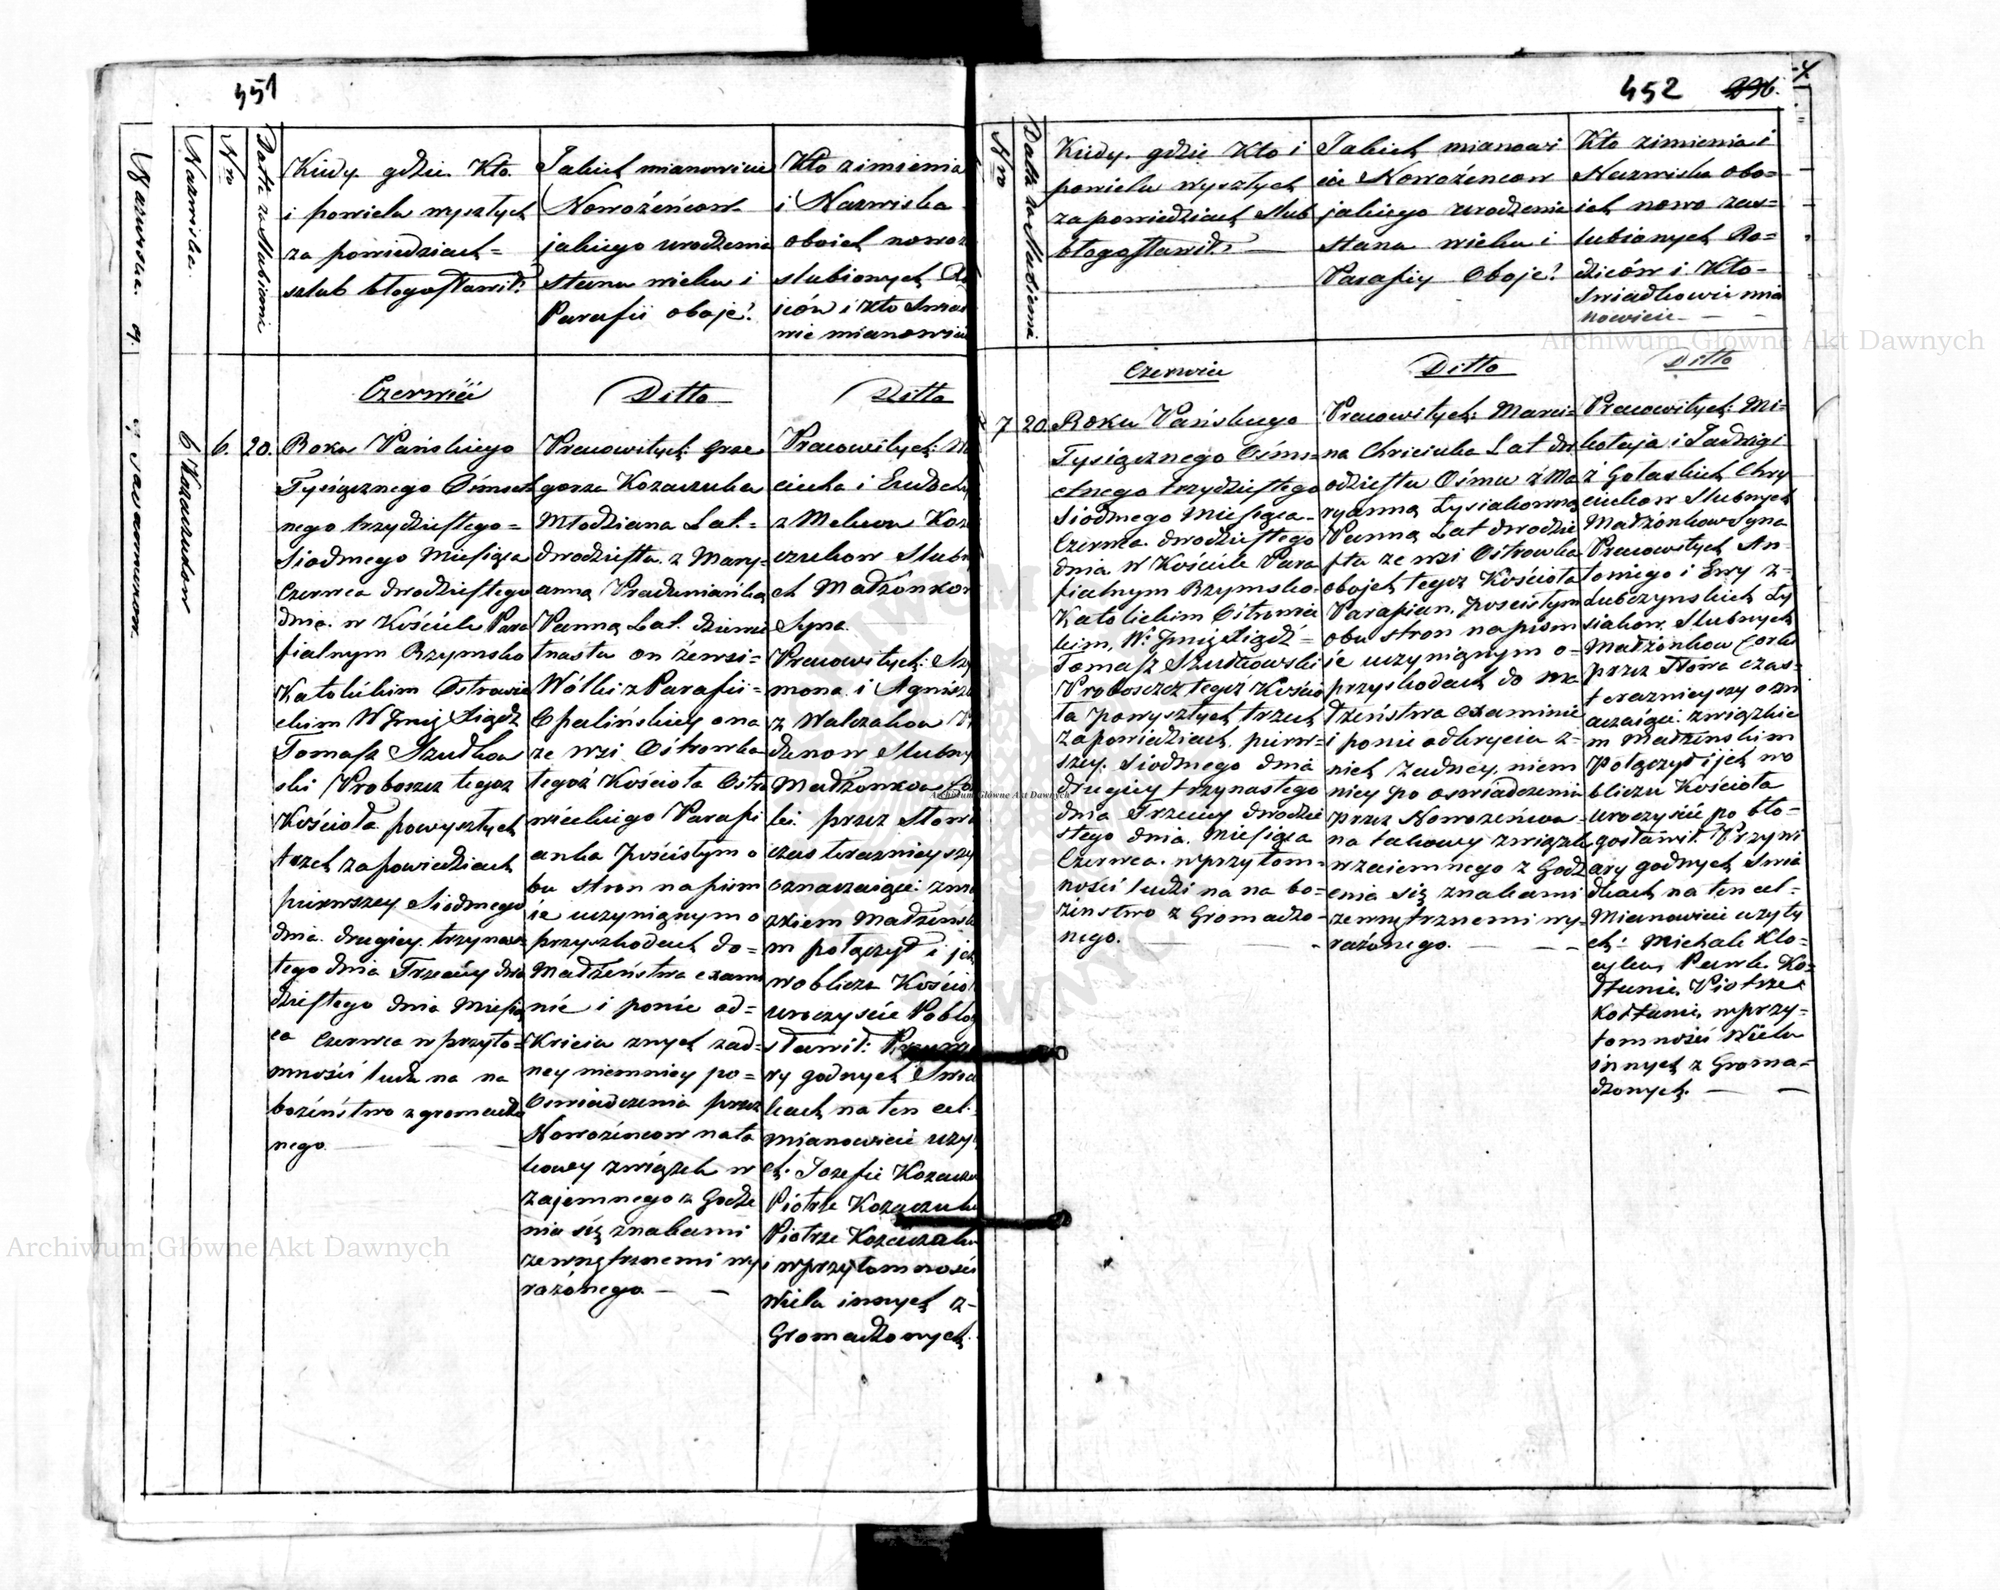 451
Nazwiska.
Nro
Datta zaslubienia
Kiedy gdzie Kto
i powielu wyszłych
za powiedziach
szlub błogosławił?
Jakich mianowicie
Nowożeńcow
jakiego urodzenia
stanu wieku i
Parafii oboje?
Kto zimienia
i Nazwiska
oboich nowo
slubionych
nie mianowicie
6 Kozaczukow
6.
20.
Czerwiec
Roku Pańskiego
Tysiącznego Ośmset
nego trzydziestego
Siodmego Miesiąca
Czerwca dwodziestego
dnia w Kościele Para
fialnym Rzymsko
Katolickim Ostrowie
ckim W Jmć Xiądz
Tomasz Szudkow
ski Proboszcz tegoz
Kościoła powyszłych
trzech zapowiedziach
pierwszey Siodmego
dnia drugiey trzynas
tego dnia Trzeciey dwo
dziestego dnia Miesią
ca Czerwca w przyto
mności ludu na na
bożeństwo zgromadzo
nego.
Ditto
Pracowitych: Grze
gorza Kozaczuka
Młodziana Lat
dwodziestu z Mary
anną Pradunianką
Panną Lat dziewie
tnastu on zewsi
Wólki z Parafii
Opalińskiey ona
ze wsi Ostrowka
tegoż Kościoła Ostro
wieckiego Parafi
anka poscistym o
bu stron na pism
ie uczynionym o
przyszkodach do
Madżeństwa exami
nie i ponie od
Kricia znych zad
ney niemniey po
Oswiadczenia przez
Nowożeńcow nata
kowy związek w
zajemnego z Godze
nia się znakami
zewnętrznemi wy
rażonego
Ditto
Pracowitych:
z Melnow
czukow Slubn
ch Madżonkow
Syna
Pracowitych: Szy
mona i Agniszki
z Walczukow
Madżonkow
ki przez Słowa
czas teraznieyszy
oznaczaiące zwią
zkiem Madżeńsk
m połączył i ich
wobliczu Kościoła
uroczyście Pobłog
sławił:
ry godnych Swia
kach na ten cel
mianowicie uzy
ch: Jozefie Kozaczu
Piotrze Kozaczuku
Piotrze Kozaczuku
i wprzytomności
Wielu innych z
Gromadzonych
452
Nro
Datta zaslubienia
Kiedy gdzie Kto i
powielu wyszłych
zapowiedziach Slub
błogosławił?
Jakich mianowi
cie Nowożeńcow
jakiego urodzenia
stanu wieku i
Parafiy Oboje?
Kto zimienia i
Nazwiska obo=
ich nowo zas=
lubionych Ro=
dziców i Kto
Swiadkowie mia
nowicie
7
20
Czerwiec
Roku Pańskiego
Tysiącznego Ośms
etnego trzydziestego
Siodmego Miesiąca
Czerwca dwodziestego
dnia w Kościele Para
fialnym Rzymsko
Katolickim Ostrowiec
kim, W Jmć Xiądz
Tomasz Szudkowski
Proboszcz tegoż Koscio
ła powyszłych trzech
zapowiedziach pierw
szey Siodmego dnia
drugiey trzynastego
dnia Trzeciey dwodzie
stego dnia Miesiąca
Czerwca w przytom
ności ludzi na na bo=
żeństwo z Gromadzo=
nego.
Ditto
Pracowitych: Marci=
na Chriciuka Lat dw
odziestu Ośmu z Ma
ryanną Lysiakowną
Panną Lat dwodzie
stu ze wsi Ostrowka
obojeh tegoz Kościoła
Parafian, poscistym
obu stron na pism
ie uczynionym o=
przyszkodach do Ma
dżeństwa examinie
i ponie odkryciu z
nich żadney niem
niey po oswiadczenia
przez Nowożeńcow
na takowy związek
wzaiemnego z Godz
enia się znakami
zewnętrznemi wy
rażonego.
Ditto
Pracowitych: Mi=
kołaja i Jadwigi
z Golaskich Chry
ciukow Slubnych
Madżonkow Syna
Pracowitych An
toniego i Ewy z
Lubczynskich Ly
siakow Slubnych
Madżonkow Corke
przez słowa czas=
teraznieyszy ozn
aczaiące związkie
m Madżenskim
Połączył i ich wo
bliczu Kościoła
uroczyście pobło=
gosławił. Przywi
ary godnych Swia
dkach na ten cel
Mianowicie uzyty
ch: Michale Kło=
cyku, Pawle Ko
dłunie, Piotrze
Kołtunie, wprzy=
tomności Wielu
innych z Groma=
dzonych.
Archiwum Główne Akt Dawnych
Archiwum Główne Akt Dawnych
Archiwum Główne Akt Dawnych